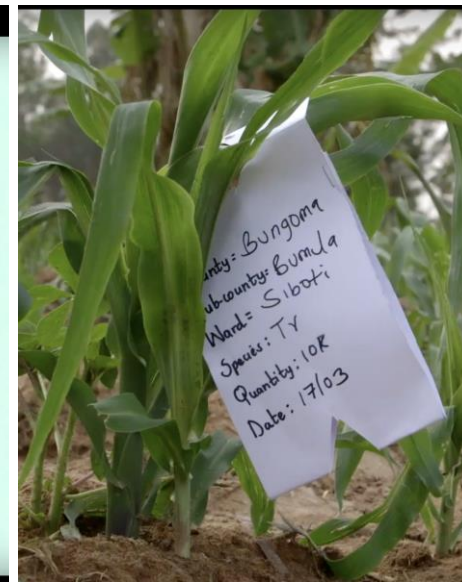 unty= Bungoma
ub-county= Bumula
Ward= Siboti
Species: Tr
Quantity: 10R
Date: 17/03